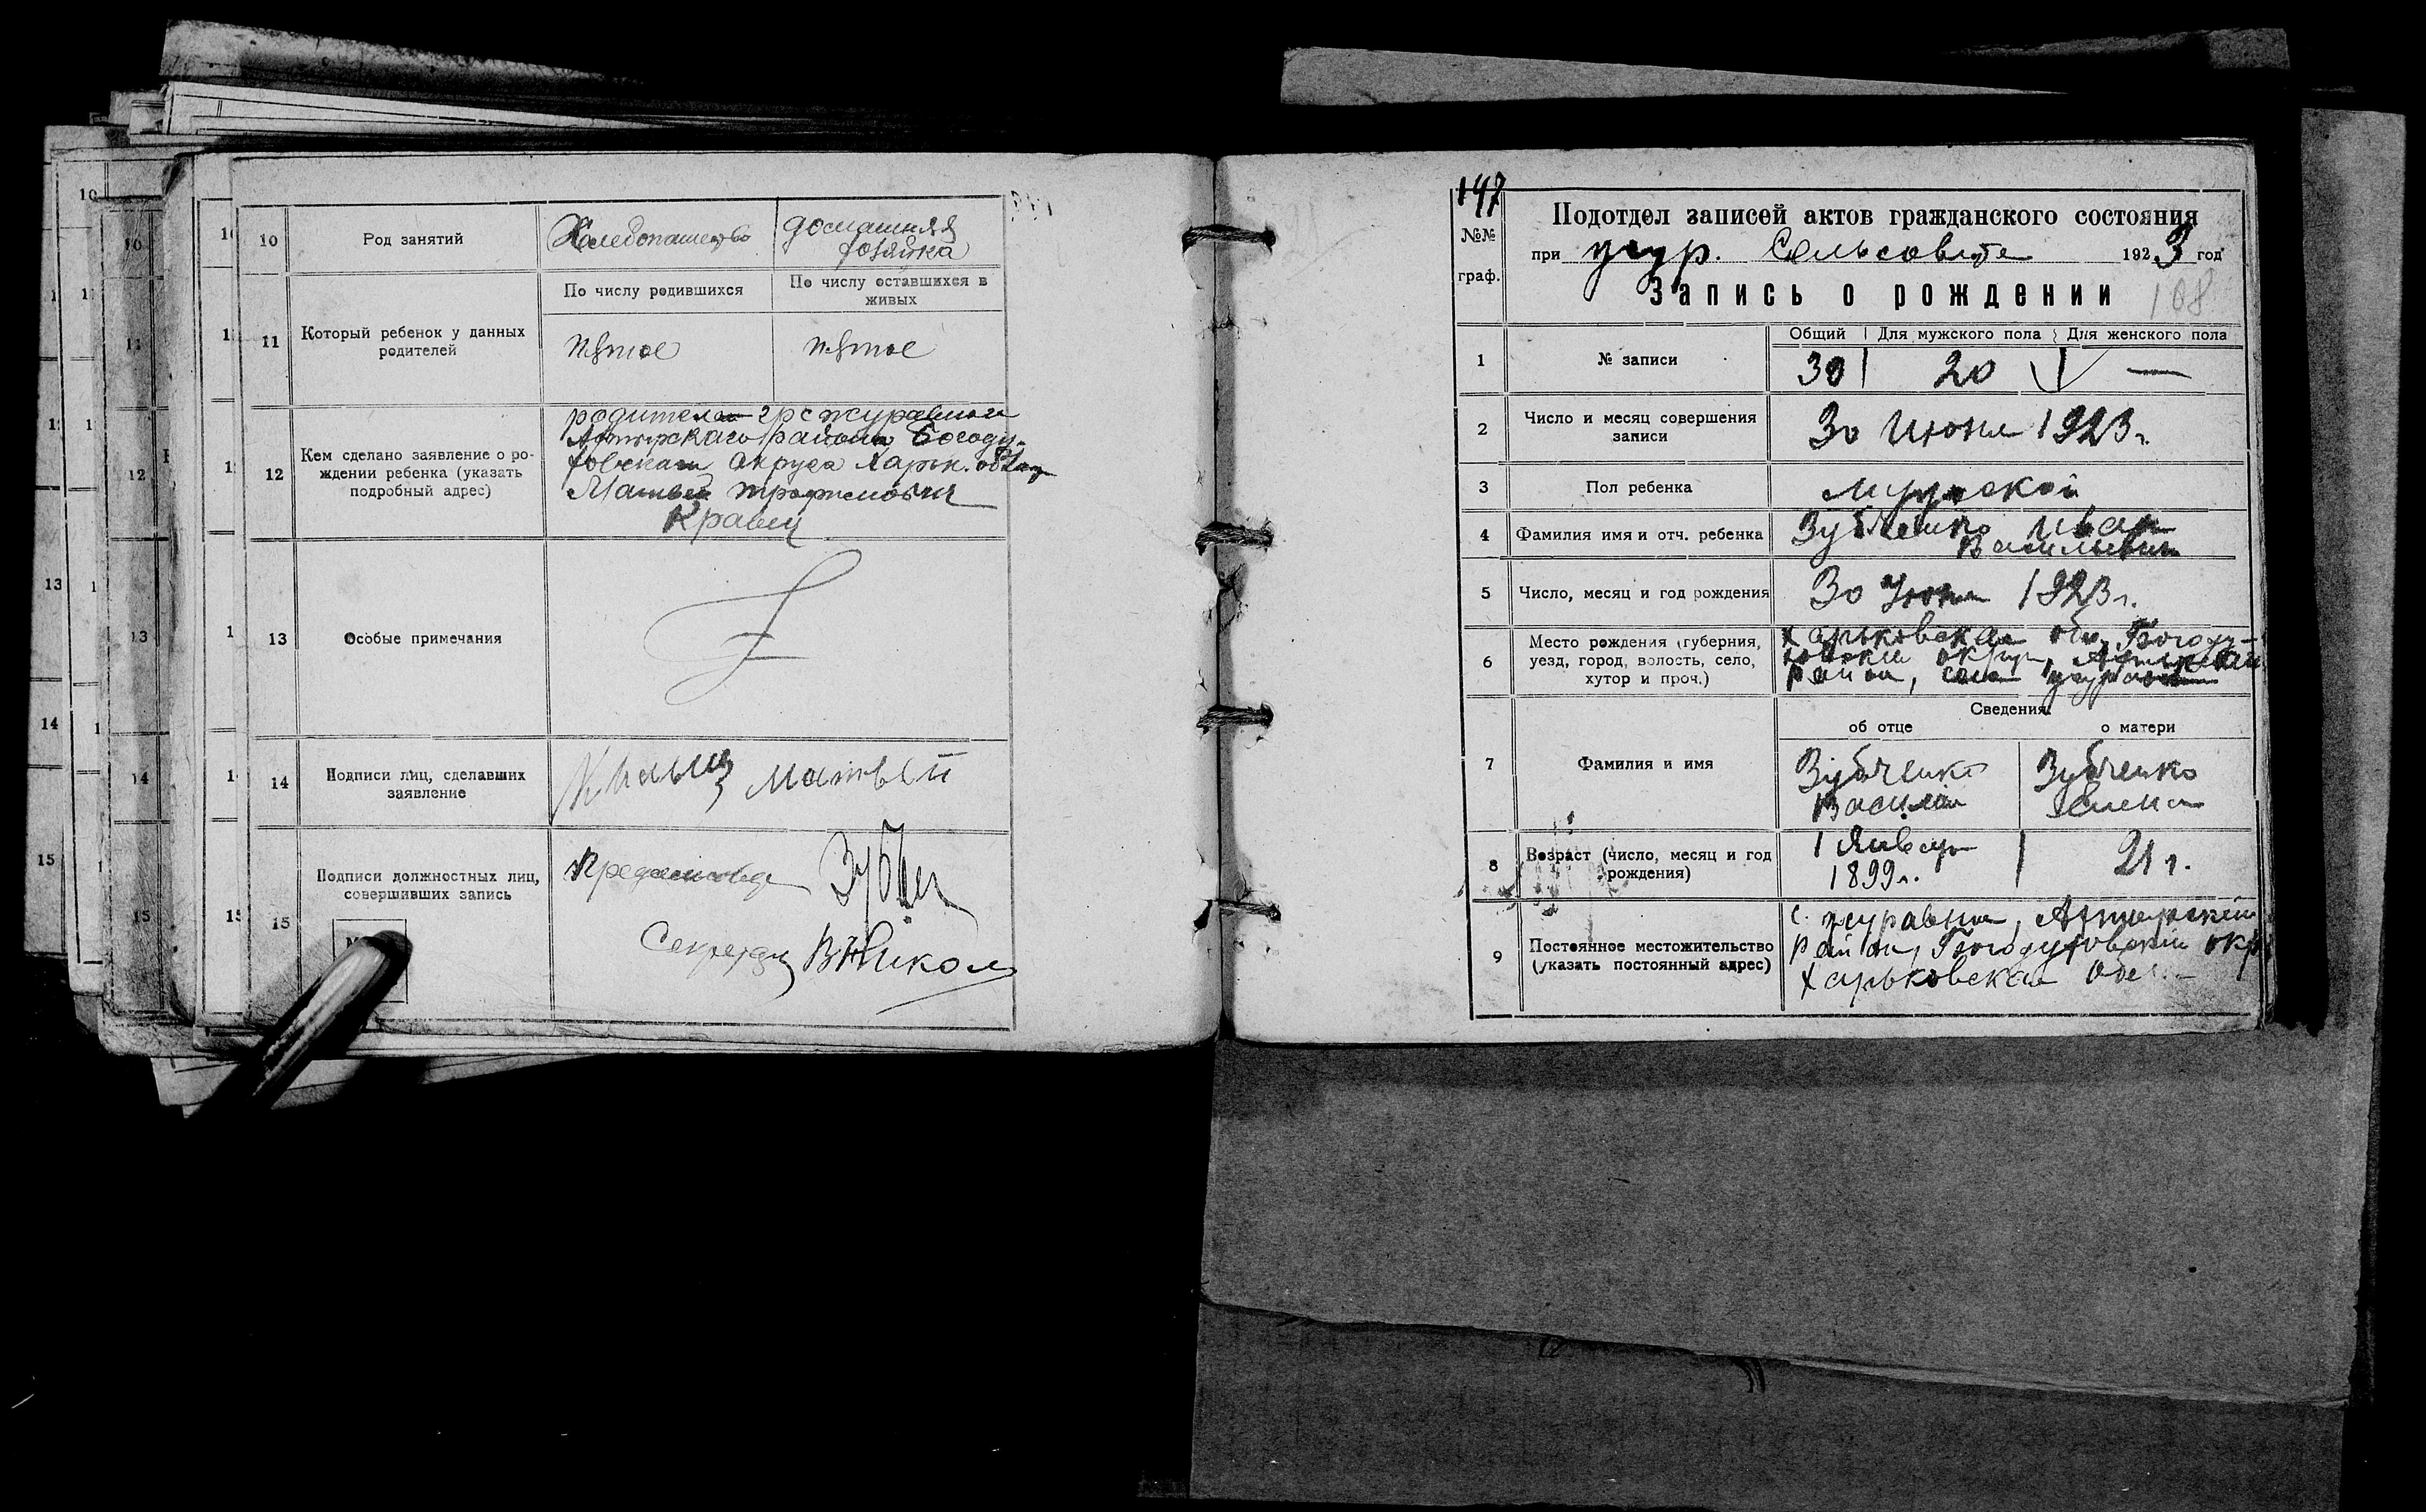 10
Род занятий
Хлебопашество
домашняя
хозяйка
11
Который ребенок у данных
родителей
По числу родившихся
По числу оставшихся в
живых
пятое
пятое
12
Кем сделано заявление о ро-
ждении ребенка (указать
подробный адрес)
родителем гр с журавного
Ахтырскаго района Богоду-
ховскаго округа Харьк.
Матвей Трофимович
Кравец
13
Особые примечания
14
Подписи лиц, сделавших
заявление
Матвей
15
Подписи должностных лиц,
совершивших запись
Секретарь
147
№№
граф.
Подотдел записей актов гражданского состояния
при жур. Сельсовете 1923 год
Запись о рождении
108
1
№ записи
Общий
Для мужского пола
Для женского пола
30
20
—
2
Число и месяц совершения
записи
30 Июня 1923 г.
3
Пол ребенка
мужской
4
Фамилия имя и отч. ребенка
Зубченко Иван
Васильевич
5
Число, месяц и год рождения
30 Июня 1923 г.
6
Место рождения (губерния,
уезд, город, волость, село,
хутор и проч.)
Харьковская обл, Богоду-
ховский округ, Ахтырский
район, село
7
Фамилия и имя
Сведения
об отце
о матери
Зубченко
Василий
Зубченко
Елена
8
Возраст (число, месяц и год
рождения)
1 Января
1899 г.
21 г.
9
Постоянное местожительство
(указать постоянный адрес)
с. журавное, Ахтырский
район, Богодуховский окр
Харьковская